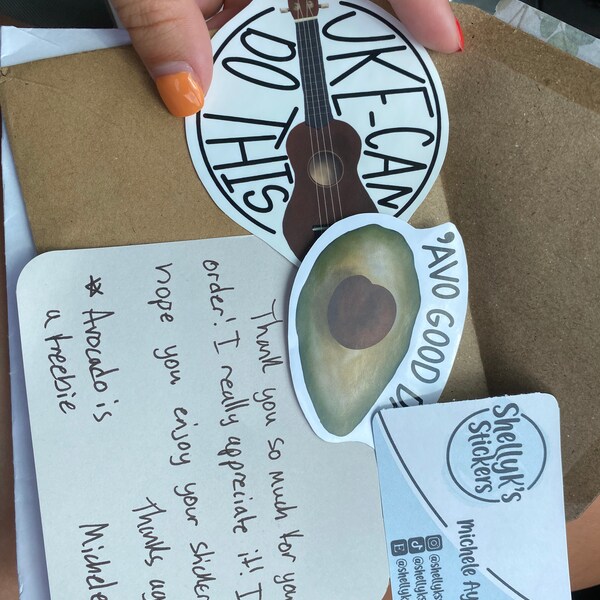 UKE-CAN
DO THIS
'AVO GOOD
Thank you so much for you
order! I really appreciate it! I
hope you enjoy your sticker
Thanks ag
Michele
* Avocado is
a freebie
Shellyk's
Stickers
Michele Ay
@shellyks
@shellyks
@shellyk